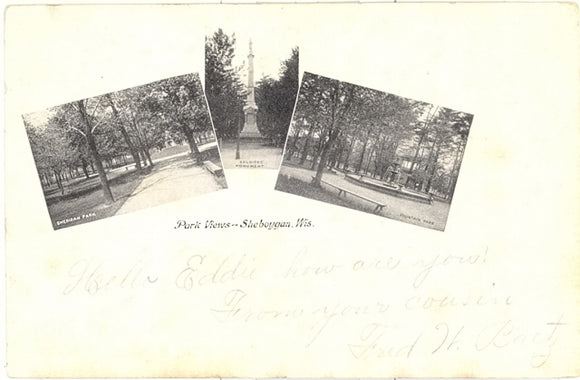 SOLDIERS
MONUMENT.
SHERIDAN PARK.
FOUNTAIN PARK.
Park Views--Sheboygan, Wis.
Hello Eddie how are you!
From your cousin
Fred W.